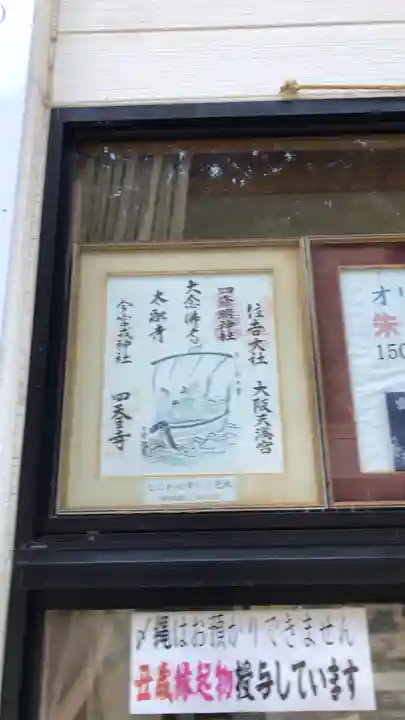 住吉大社
大阪天満宮
四条畷神社
大念佛寺
太融寺
今宮戎神社
四天王寺
オリ
朱
150
〆縄はお預かりできません
丑歳縁起物授与しています